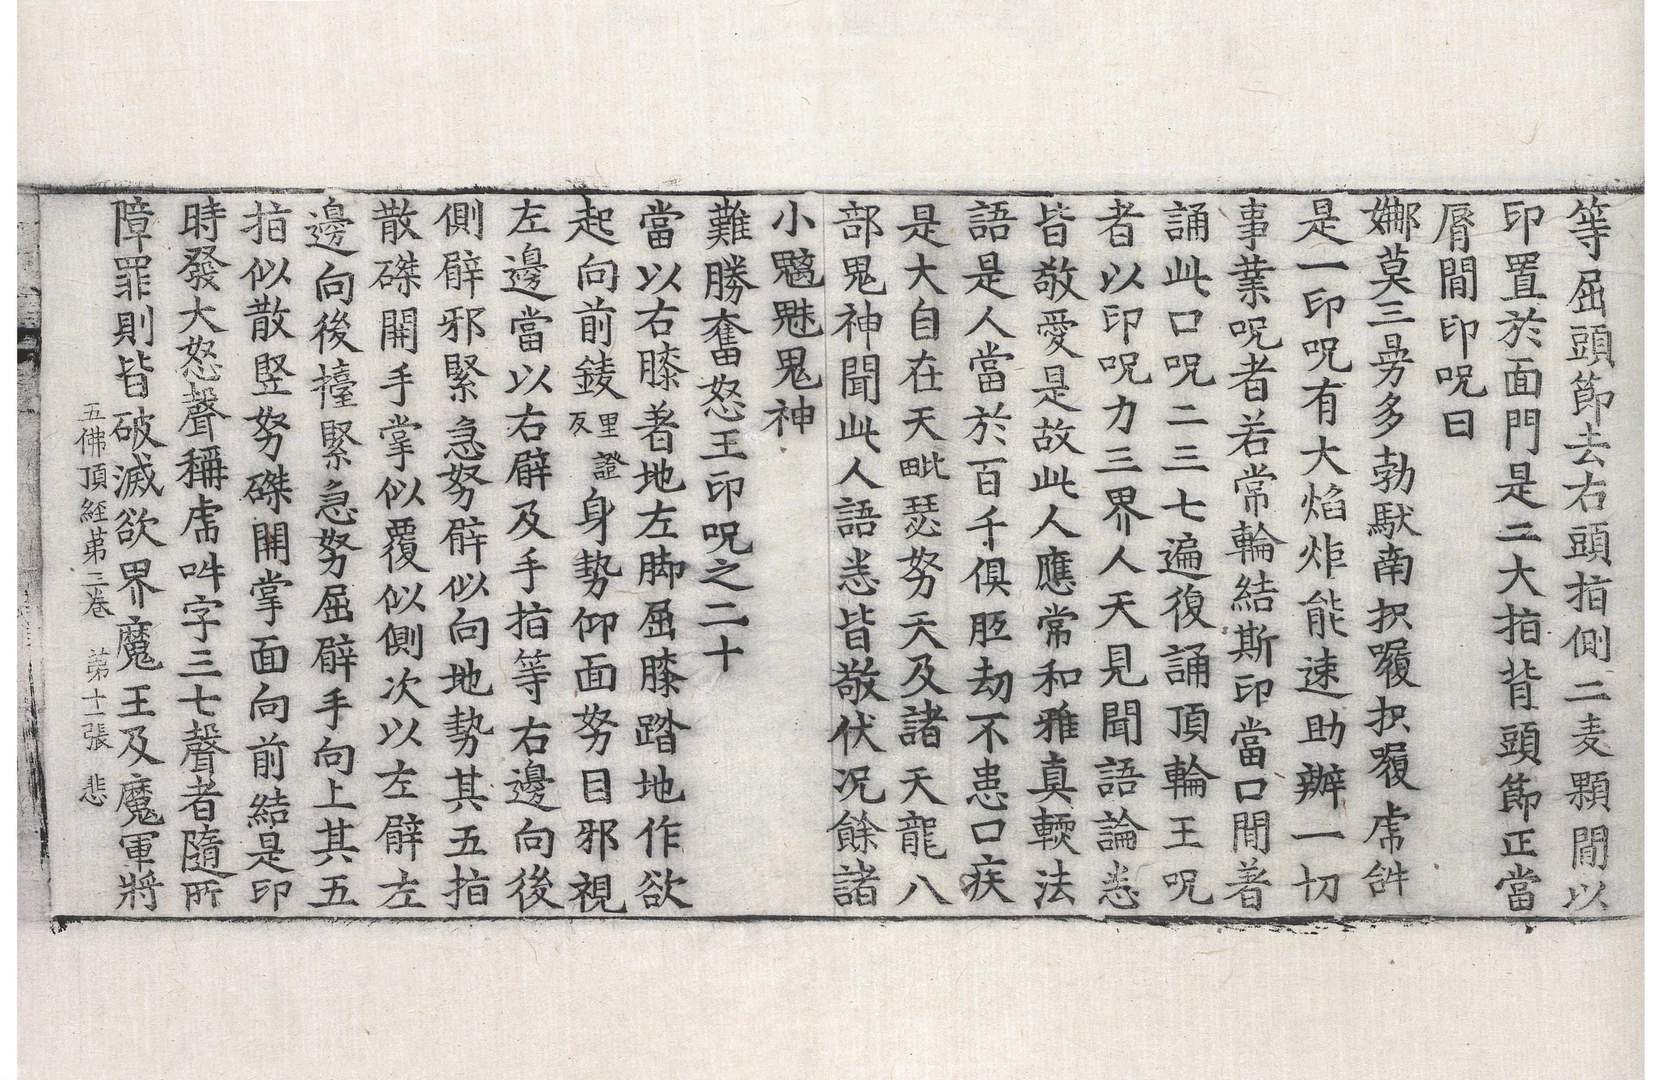 等屈頭節去右頭指側二麦顆間以
印置於面門是二大指背頭節正當
脣間印呪曰
娜莫三曼多勃馱南抧囇抧囇虎𤙖
是一印呪有大焰炸能速助辦一切
事業呪者若常輪結斯印當口間著
誦此口呪二三七遍復誦頂輪王呪
者以印呪力三界人天見聞語論悉
皆敬愛是故此人應常和雅真輭法
語是人當於百千俱胝劫不患口疾
是大自在天毗瑟努天及諸天龍八
部鬼神聞此人語悉皆敬伏况餘諸
小魑魅鬼神
難勝奮怒王印呪之二十
當以右膝著地左脚屈膝踏地作欲
起向前錂里證反身勢仰面努目邪視
左邊當以右臂及手指等右邊向後
側臂邪緊急努臂似向地勢其五指
散磔開手掌似覆似側次以左臂左
邊向後擡緊急努屈臂手向上其五
指似散竪努磔開掌面向前結是印
時發大怒聲稱虎𤙖字三七聲者隨所
障罪則皆破滅欲界魔王及魔軍將
五佛頂經第三卷 第十一張 悲